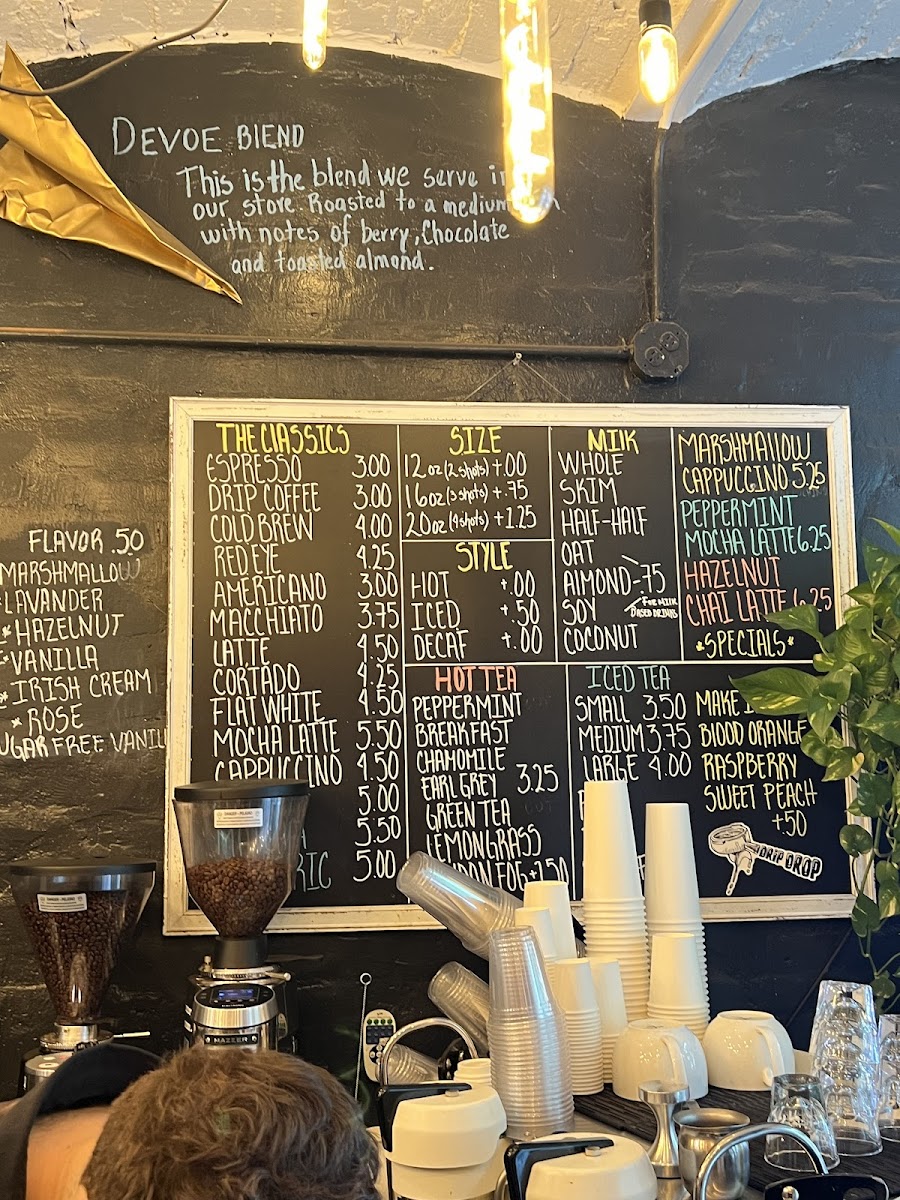 DEVOE BLEND
This is the blend we serve in
our store. Roasted to a medium
with notes of berry, Chocolate
and toasted almond.
FLAVOR .50
MARSHMALLOW
LAVANDER
*HAZELNUT
VANILLA
*IRISH CREAM
*ROSE
SUGAR FREE VANILL
THE CLASSICS
ESPRESSO 3.00
DRIP COFFEE 3.00
COLD BREW 4.00
RED EYE 4.25
AMERICANO 3.00
MACCHIATO 3.75
LATTE 4.50
CORTADO 4.25
FLAT WHITE 4.50
MOCHA LATTE 5.50
CAPPUCCINO 4.50
5.00
5.50
RIC 5.00
SIZE
12oz (2 shots) +.00
16oz (3 shots) +.75
20oz (4 shots) +1.25
STYLE
HOT +.00
ICED +.50
DECAF +.00
MILK
WHOLE
SKIM
HALF-HALF
OAT
ALMOND-.75
SOY
COCONUT
FOR MILK
BASED DRINKS
MARSHMALLOW
CAPPUCCINO 5.25
PEPPERMINT
MOCHA LATTE 6.25
HAZELNUT
CHAI LATTE 6.25
*SPECIALS*
HOT TEA
PEPPERMINT
BREAKFAST
CHAMOMILE
EARL GREY 3.25
GREEN TEA
LEMONGRASS
DON FOG +1.50
ICED TEA
SMALL 3.50
MEDIUM 3.75
LARGE 4.00
MAKE
BLOOD ORANGE
RASPBERRY
SWEET PEACH
+.50
DRIP DROP
MAZZER